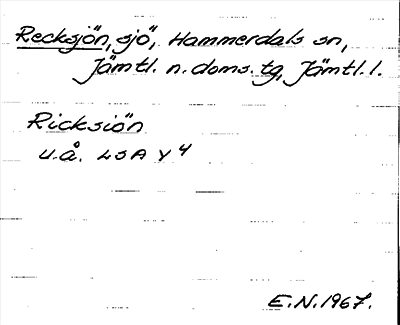 Recksjön, sjö, Hammerdals sn,
Jämtl. n. doms. tg, Jämtl. l.
Ricksiön
u.å. LSA Y 4
E.N. 1967.